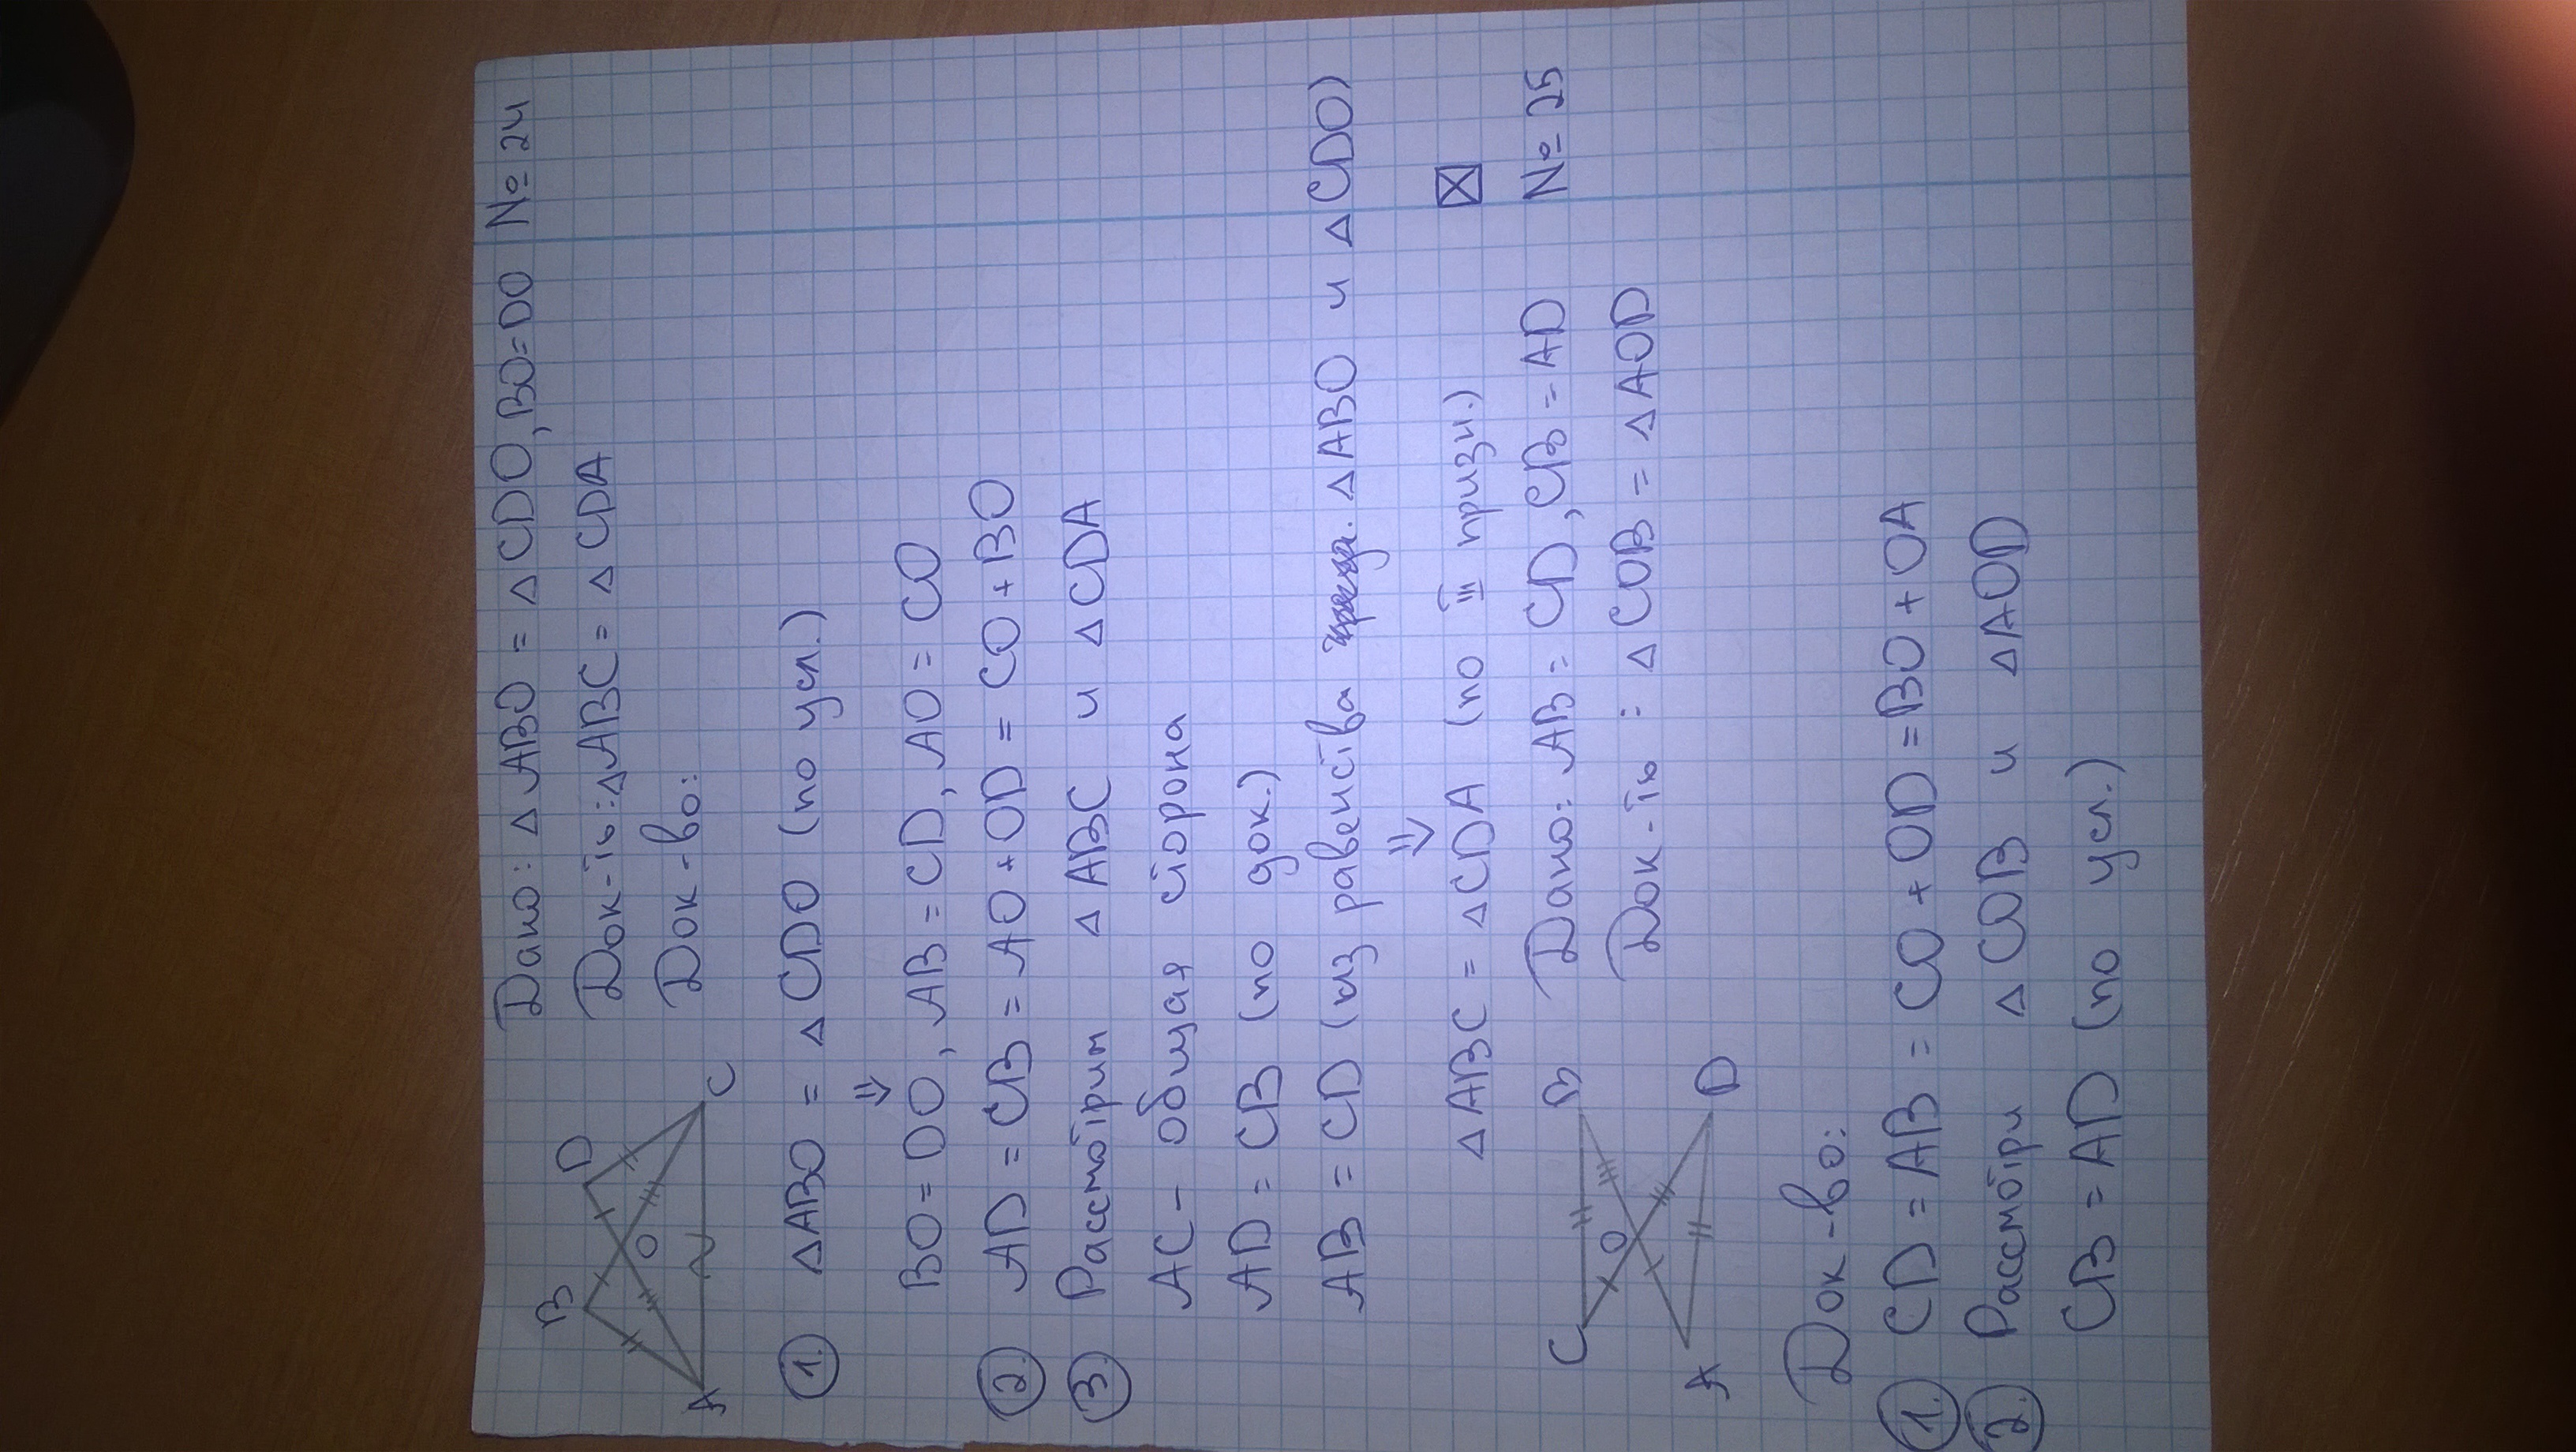 Дано: △ABO = △CDO, BO=DO № 24
Док-ть: △ABC = △CDA
Док-во:
B D
O
A C
1. △ABO = △CDO (по усл.)
⇓
BO = DO, AB = CD, AO = CO
2. AD = CB = AO + OD = CO + BO
3. Рассмотрим △ABC и △CDA
AC - общая сторона
AD = CB (по док.)
AB = CD (из равенства △ABO и △CDO)
⇓
△ABC = △CDA (по III призн.)
№ 25
C B Дано: AB = CD, CB = AD
O Док-ть: △COB = △AOD
A D
Док-во:
1. CD = AB = CO + OD = BO + OA
2. Рассмотри △COB и △AOD
CB = AD (по усл.)